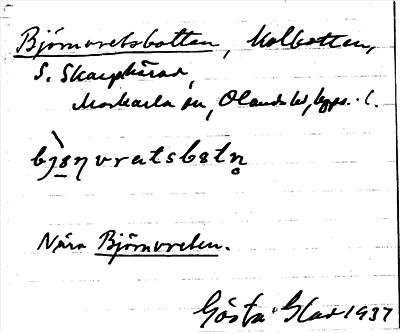 Björnvretsbotten, Kolbotten,
S. Skarphärad,
Markarla sn, Olands hd, Upps. l.
bjo̠ŋvratsbotn̥
Nära Björnvreten.
Gösta Glad 1937